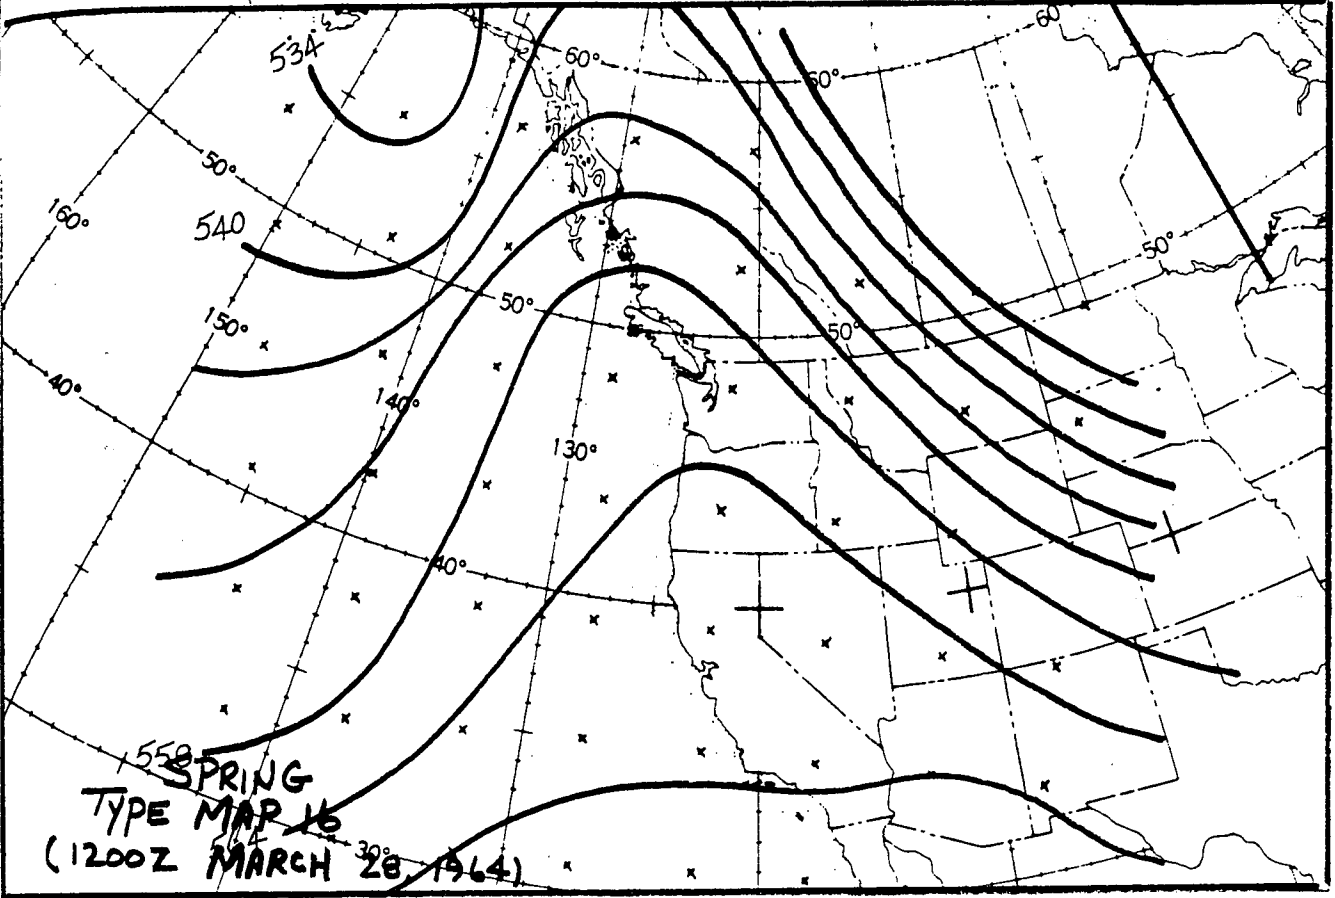 60°
534
60°
60°
50°
160°
540
50°
50°
150°
50°
40°
140°
130°
40°
558
SPRING
TYPE MAP 16
30°
(1200Z MARCH 28, 1964)